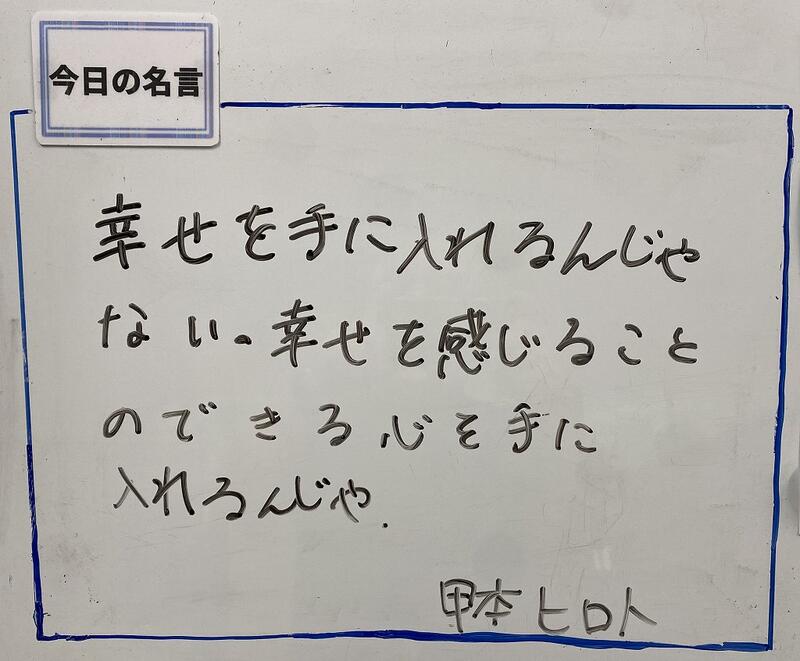 今日の名言
幸せを手に入れるんじゃ
ない。幸せを感じること
のできる心を手に
入れるんじゃ.
甲本ヒロト